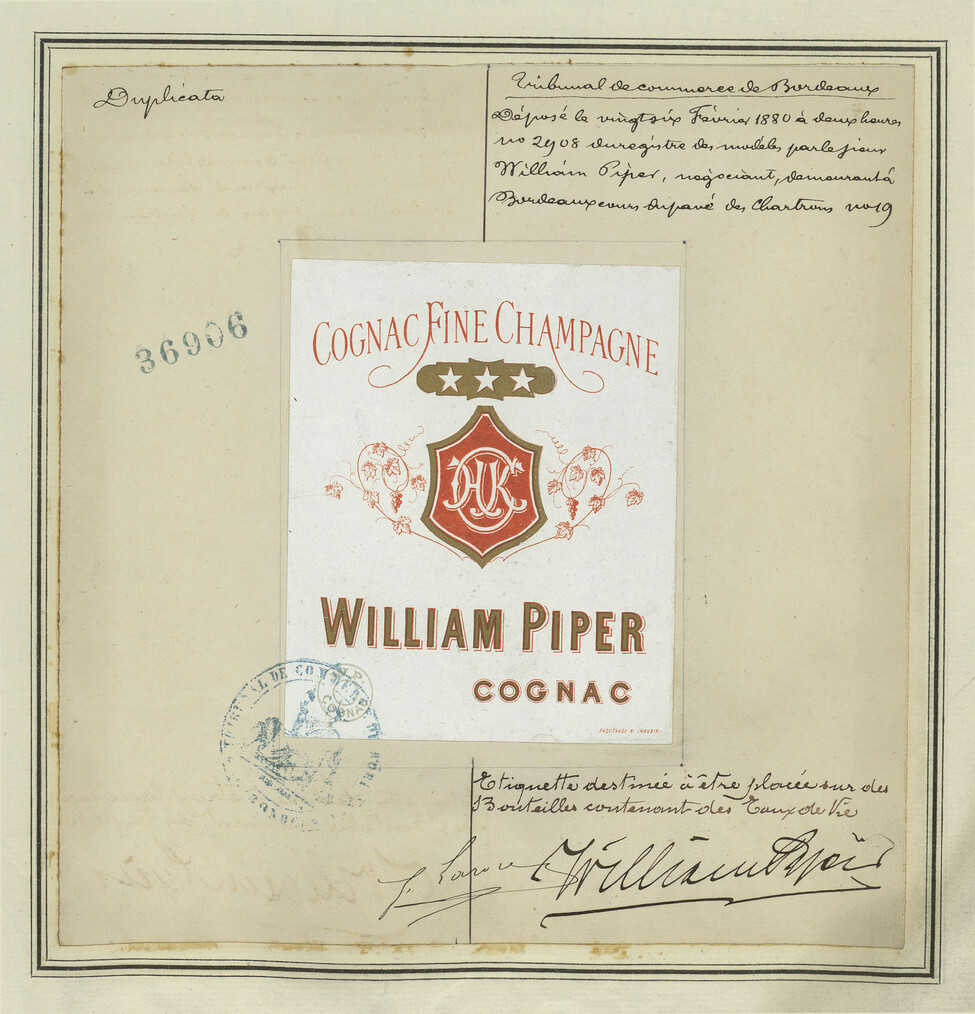 Duplicata
Tribunal de commerce de Bordeaux
Déposé le vingt six Février 1880 à deux heures
no 2908 du registre des modèles par le sieur
William Piper, négociant, demeurant à
Bordeaux cours du pavé des Chartrons no 19
36906
COGNAC FINE CHAMPAGNE
WILLIAM PIPER
COGNAC
TRIBUNAL DE COMMERCE DE BORDEAUX
W.P.
COGNAC
Etiquette destinée à être placée sur des
Bouteilles contenant des Eaux de Vie
William Piper